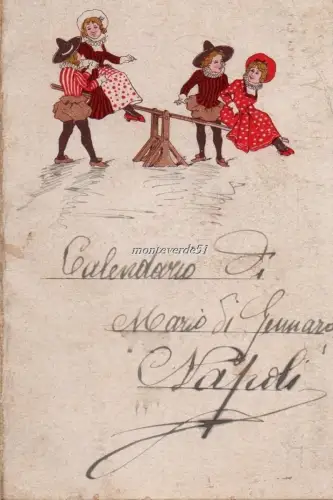 monteverde51
Calendario Di
Mario Di Gennaro
Napoli